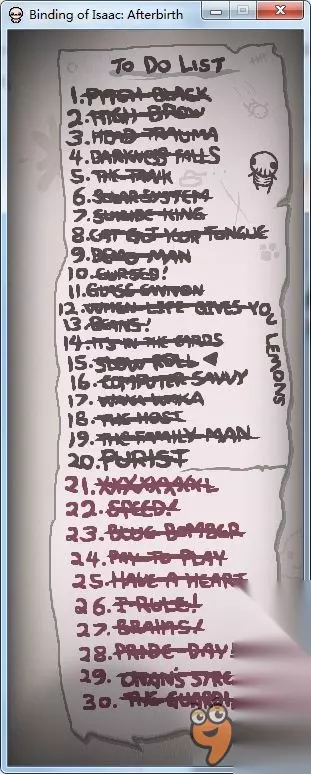 Binding of Isaac: Afterbirth
TO DO LIST
1. PITCH BLACK
2. HIGH BROW
3. HEAD TRAUMA
4. DARKNESS FALLS
5. THE TANK
6. SOLAR SYSTEM
7. SUICIDE KING
8. CAT GOT YOUR TONGUE
9. DEMO MAN
10. CURSED!
11. GLASS CANNON
12. WHEN LIFE GIVES YOU LEMONS
13. BEANS!
14. IT'S IN THE CARDS
15. SLOW ROLL
16. COMPUTER SAVVY
17. WAKA WAKA
18. THE HOST
19. THE FAMILY MAN
20. PURIST
21. XXXXXXXXL
22. SPEED!
23. BLUE BOMBER
24. PAY TO PLAY
25. HAVE A HEART
26. I RULE!
27. BRAINS!
28. PRIDE DAY!
29. ONAN'S STRE
30. THE GUARDI